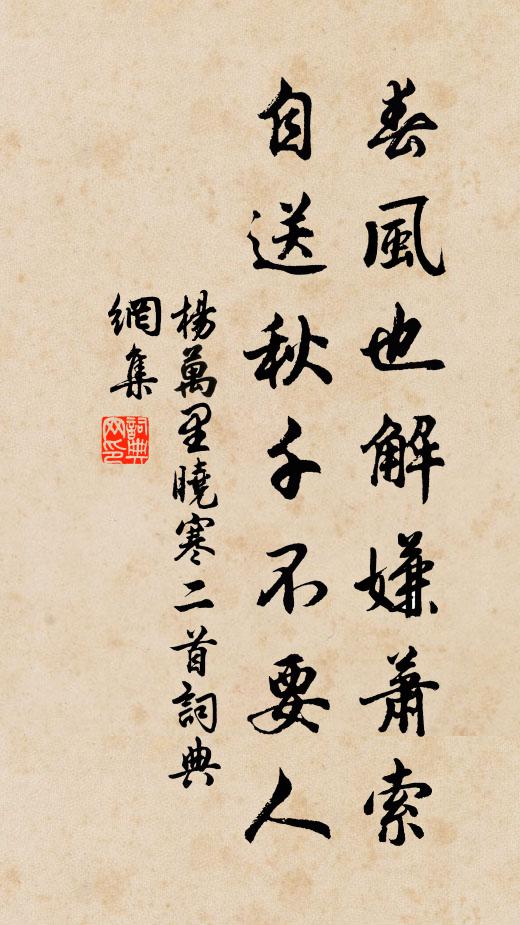 春風也解嫌蕭索
自送秋千不要人
楊萬里曉寒二首詞典
網集
詞典
网印